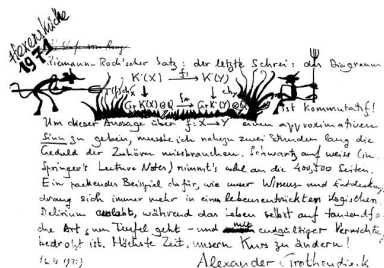 Hexenküche 1971
Riemann-Roch'scher Satz: der letzte Schrei: das Diagramm
K˙(X) f! K˙(Y)
ch
Gr K˙(X)⊗Q f* Gr K˙(Y)⊗Q
ist kommutatif!
Um dieser Aussage über f: X → Y einen approximativen
Sinn zu geben, musste ich nahezu zwei Stunden lang die
Geduld der Zuhörer missbrauchen. Schwarz auf weiss (in
Springer's Lecture Notes) nimmt's wohl an die 400, 500 Seiten.
Ein packendes Beispiel dafür, wie unser Wissens- und Entdeckungs
drang sich immer mehr in einen lebensentrückten logischen
Delirium auslebt, während das Leben selbst auf tausendfa-
che Art zum Teufel geht - und mit endgültiger Vernichtung
bedroht ist. Höchste Zeit, unsern Kurs zu ändern!
Alexander Grothendieck